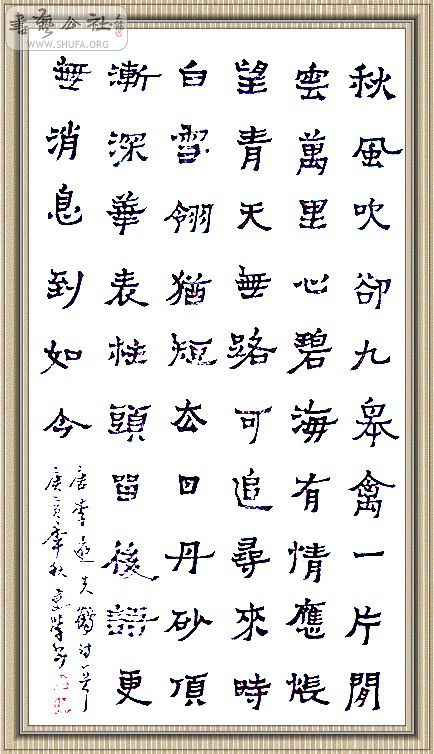 書藝公社
WWW.SHUFA.ORG
秋風吹卻九皋禽一片閒
雲萬里心碧海有情應悵
望青天無路可追尋來時
白雪翎猶短去日丹砂頂
漸深華表柱頭留後語更
無消息到如今
唐李遠失鶴詩一首
庚寅年秋